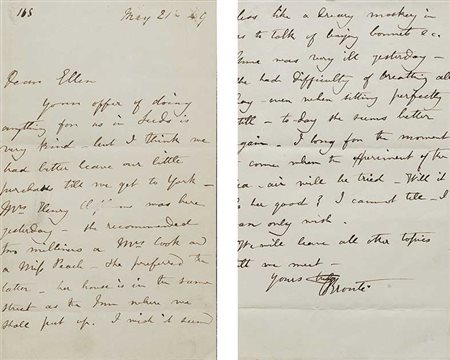 168
May 21st 49
Dear Ellen
Your offer of doing
anything for us in Leeds is
very kind - but I think we
had better leave our little
purchases till we get to York -
Mrs Henry was here
yesterday - she recommended
two milliners a Mrs Cook and
a Miss Peach - she preferred the
latter - her house is in the same
street as the Inn where we
shall put up. I wish it seemed
less like a dreary mockery in
us to talk of buying bonnets &c.
Anne was very ill yesterday -
She had difficulty of breathing all
day - even when sitting perfectly
still - to-day she seems better
again. I long for the moment
to come when the experiment of the
sea-air will be tried - Will it
do her good? I cannot tell - I
can only wish.
We will leave all other topics
till we meet -
Yours truly
CBrontë